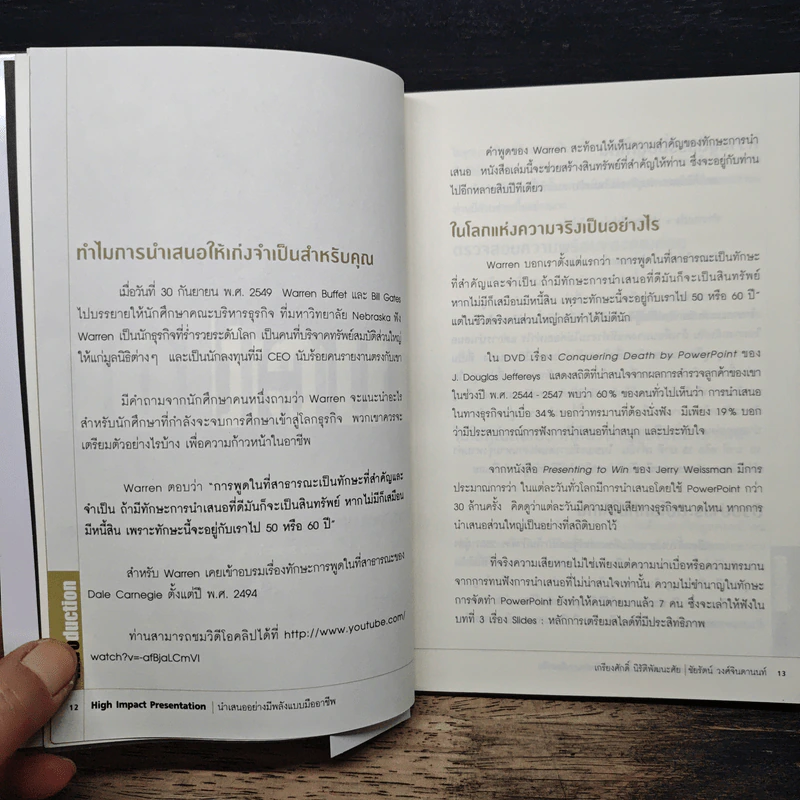 ทำไมการนำเสนอให้เก่งจำเป็นสำหรับคุณ
เมื่อวันที่ 30 กันยายน พ.ศ. 2549 Warren Buffet และ Bill Gates
ไปบรรยายให้นักศึกษาคณะบริหารธุรกิจ ที่มหาวิทยาลัย Nebraska ฟัง
Warren เป็นนักธุรกิจที่ร่ำรวยระดับโลก เป็นคนที่บริจาคทรัพย์สมบัติส่วนใหญ่
ให้แก่มูลนิธิต่างๆ และเป็นนักลงทุนที่มี CEO นับร้อยคนรายงานตรงกับเขา
มีคำถามจากนักศึกษาคนหนึ่งถามว่า Warren จะแนะนำอะไร
สำหรับนักศึกษาที่กำลังจะจบการศึกษาเข้าสู่โลกธุรกิจ พวกเขาควรจะ
เตรียมตัวอย่างไรบ้าง เพื่อความก้าวหน้าในอาชีพ
Warren ตอบว่า "การพูดในที่สาธารณะเป็นทักษะที่สำคัญและ
จำเป็น ถ้ามีทักษะการนำเสนอที่ดีมันก็จะเป็นสินทรัพย์ หากไม่มีก็เสมือน
มีหนี้สิน เพราะทักษะนี้จะอยู่กับเราไป 50 หรือ 60 ปี"
สำหรับ Warren เคยเข้าอบรมเรื่องทักษะการพูดในที่สาธารณะของ
Dale Carnegie ตั้งแต่ปี พ.ศ. 2494
ท่านสามารถชมวิดีโอคลิปได้ที่ http://www.youtube.com/
watch?v=-afBjaLCmVI
12 High Impact Presentation | นำเสนออย่างมีพลังแบบมืออาชีพ
คำพูดของ Warren สะท้อนให้เห็นความสำคัญของทักษะการนำ
เสนอ หนังสือเล่มนี้จะช่วยสร้างสินทรัพย์ที่สำคัญให้ท่าน ซึ่งจะอยู่กับท่าน
ไปอีกหลายสิบปีทีเดียว
ในโลกแห่งความจริงเป็นอย่างไร
Warren บอกเราตั้งแต่แรกว่า "การพูดในที่สาธารณะเป็นทักษะ
ที่สำคัญและจำเป็น ถ้ามีทักษะการนำเสนอที่ดีมันก็จะเป็นสินทรัพย์
หากไม่มีก็เสมือนมีหนี้สิน เพราะทักษะนี้จะอยู่กับเราไป 50 หรือ 60 ปี"
แต่ในชีวิตจริงคนส่วนใหญ่กลับทำได้ไม่ดีนัก
ใน DVD เรื่อง Conquering Death by PowerPoint ของ
J. Douglas Jeffereys แสดงสถิติที่น่าสนใจจากผลการสำรวจลูกค้าของเขา
ในช่วงปี พ.ศ. 2544 - 2547 พบว่า 60% ของคนทั่วไปเห็นว่า การนำเสนอ
ในทางธุรกิจน่าเบื่อ 34% บอกว่าทรมานที่ต้องนั่งฟัง มีเพียง 19% บอก
ว่ามีประสบการณ์การฟังการนำเสนอที่น่าสนุก และประทับใจ
จากหนังสือ Presenting to Win ของ Jerry Weissman มีการ
ประมาณการว่า ในแต่ละวันทั่วโลกมีการนำเสนอโดยใช้ PowerPoint กว่า
30 ล้านครั้ง คิดดูว่าแต่ละวันมีความสูญเสียทางธุรกิจขนาดไหน หากการ
นำเสนอส่วนใหญ่เป็นอย่างที่สถิติบอกไว้
ที่จริงความเสียหายไม่ใช่เพียงแต่ความน่าเบื่อหรือความทรมาน
จากการทนฟังการนำเสนอที่ไม่น่าสนใจเท่านั้น ความไม่ชำนาญในทักษะ
การจัดทำ PowerPoint ยังทำให้คนตายมาแล้ว 7 คน ซึ่งจะเล่าให้ฟังใน
บทที่ 3 เรื่อง Slides : หลักการเตรียมสไลด์ที่มีประสิทธิภาพ
เกรียงศักดิ์ นิรัติพัฒนะศัย | ชัยรัตน์ วงศ์จินดานนท์ 13